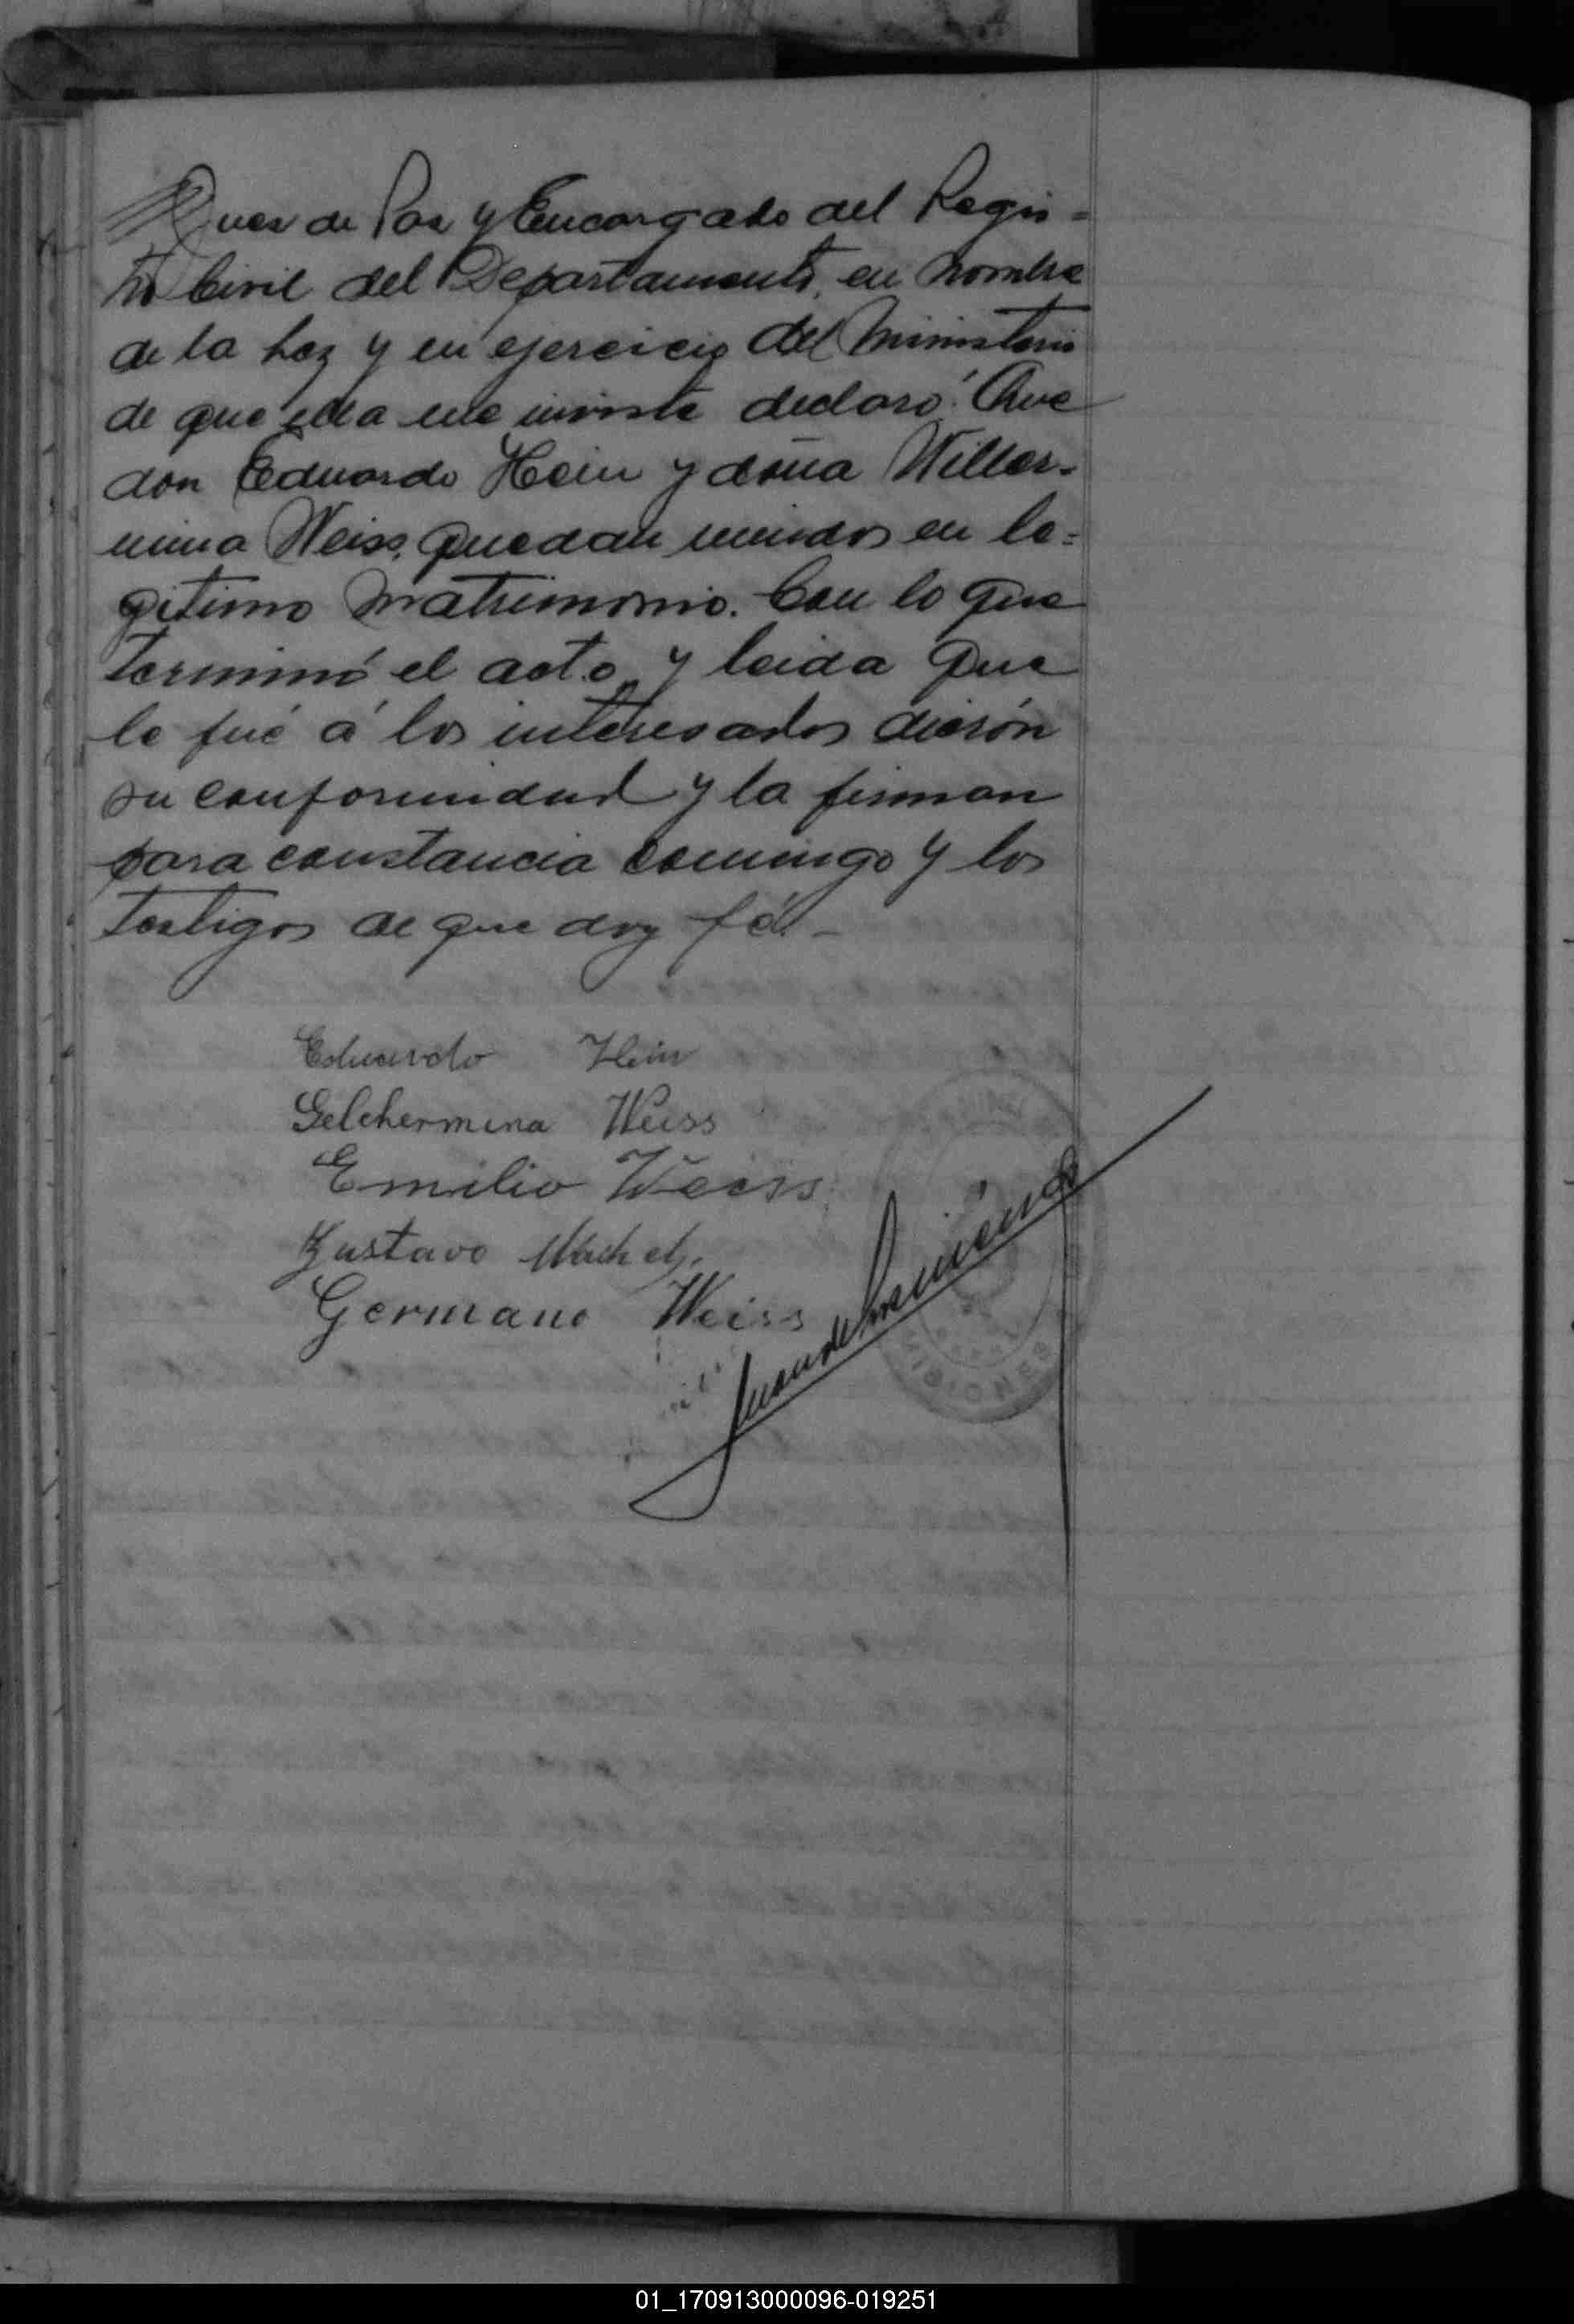 Juez de Paz y Encargado del Regis=
tro Civil del Departamento, en nombre
de la ley y en ejercicio del ministerio
de que ella me inviste declaró: Que
don Eduardo Hein y doña Willer-
mina Weiss, quedan unidos en le=
gitimo matrimonio. Con lo que
terminó el acto y leida que
le fué á los interesados dierón
su conformidad y la firman
para constancia comingo y los
testigos de que doy fé.-
Eduardo Hein
Gelchermina Weiss
Emilio Weiss
Gustavo
Germano Weiss
Juan de
MISIONES
01_170913000096-019251